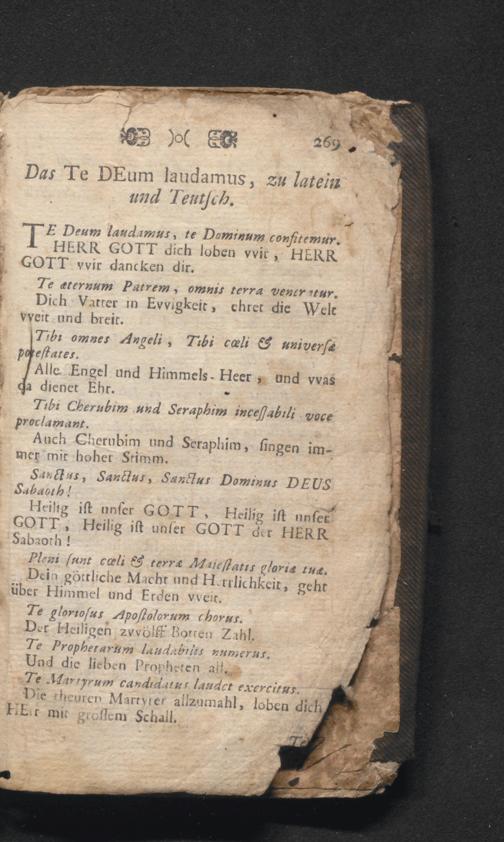 )o( 269
Das Te DEum laudamus, zu latein
und Teutſch.
TE Deum laudamus, te Dominum confitemur.
HERR GOTT dich loben vvir, HERR
GOTT vvir dancken dir.
Te æternum Patrem, omnis terra veneratur.
Dich Vatter in Evvigkeit, ehret die Welt
vveit und breit.
Tibi omnes Angeli, Tibi cœli & univerſæ
poteſtates.
Alle Engel und Himmels-Heer, und vvas
da dienet Ehr.
Tibi Cherubim und Seraphim inceſſabili voce
proclamant.
Auch Cherubim und Seraphim, ſingen im-
mer mit hoher Stimm.
Sanctus, Sanctus, Sanctus Dominus DEUS
Sabaoth!
Heilig iſt unſer GOTT, Heilig iſt unſer
GOTT, Heilig iſt unſer GOTT der HERR
Sabaoth!
Pleni ſunt cœli & terræ Maieſtatis gloriæ tuæ.
Dein göttliche Macht und Herrlichkeit, geht
über Himmel und Erden vveit.
Te glorioſus Apoſtolorum chorus.
Der Heiligen zvvölff Botten Zahl.
Te Prophetarum laudabilis numerus.
Und die lieben Propheten all.
Te Martyrum candidatus laudet exercitus.
Die theuren Martyrer allzumahl, loben dich
HErr mit groſſem Schall.